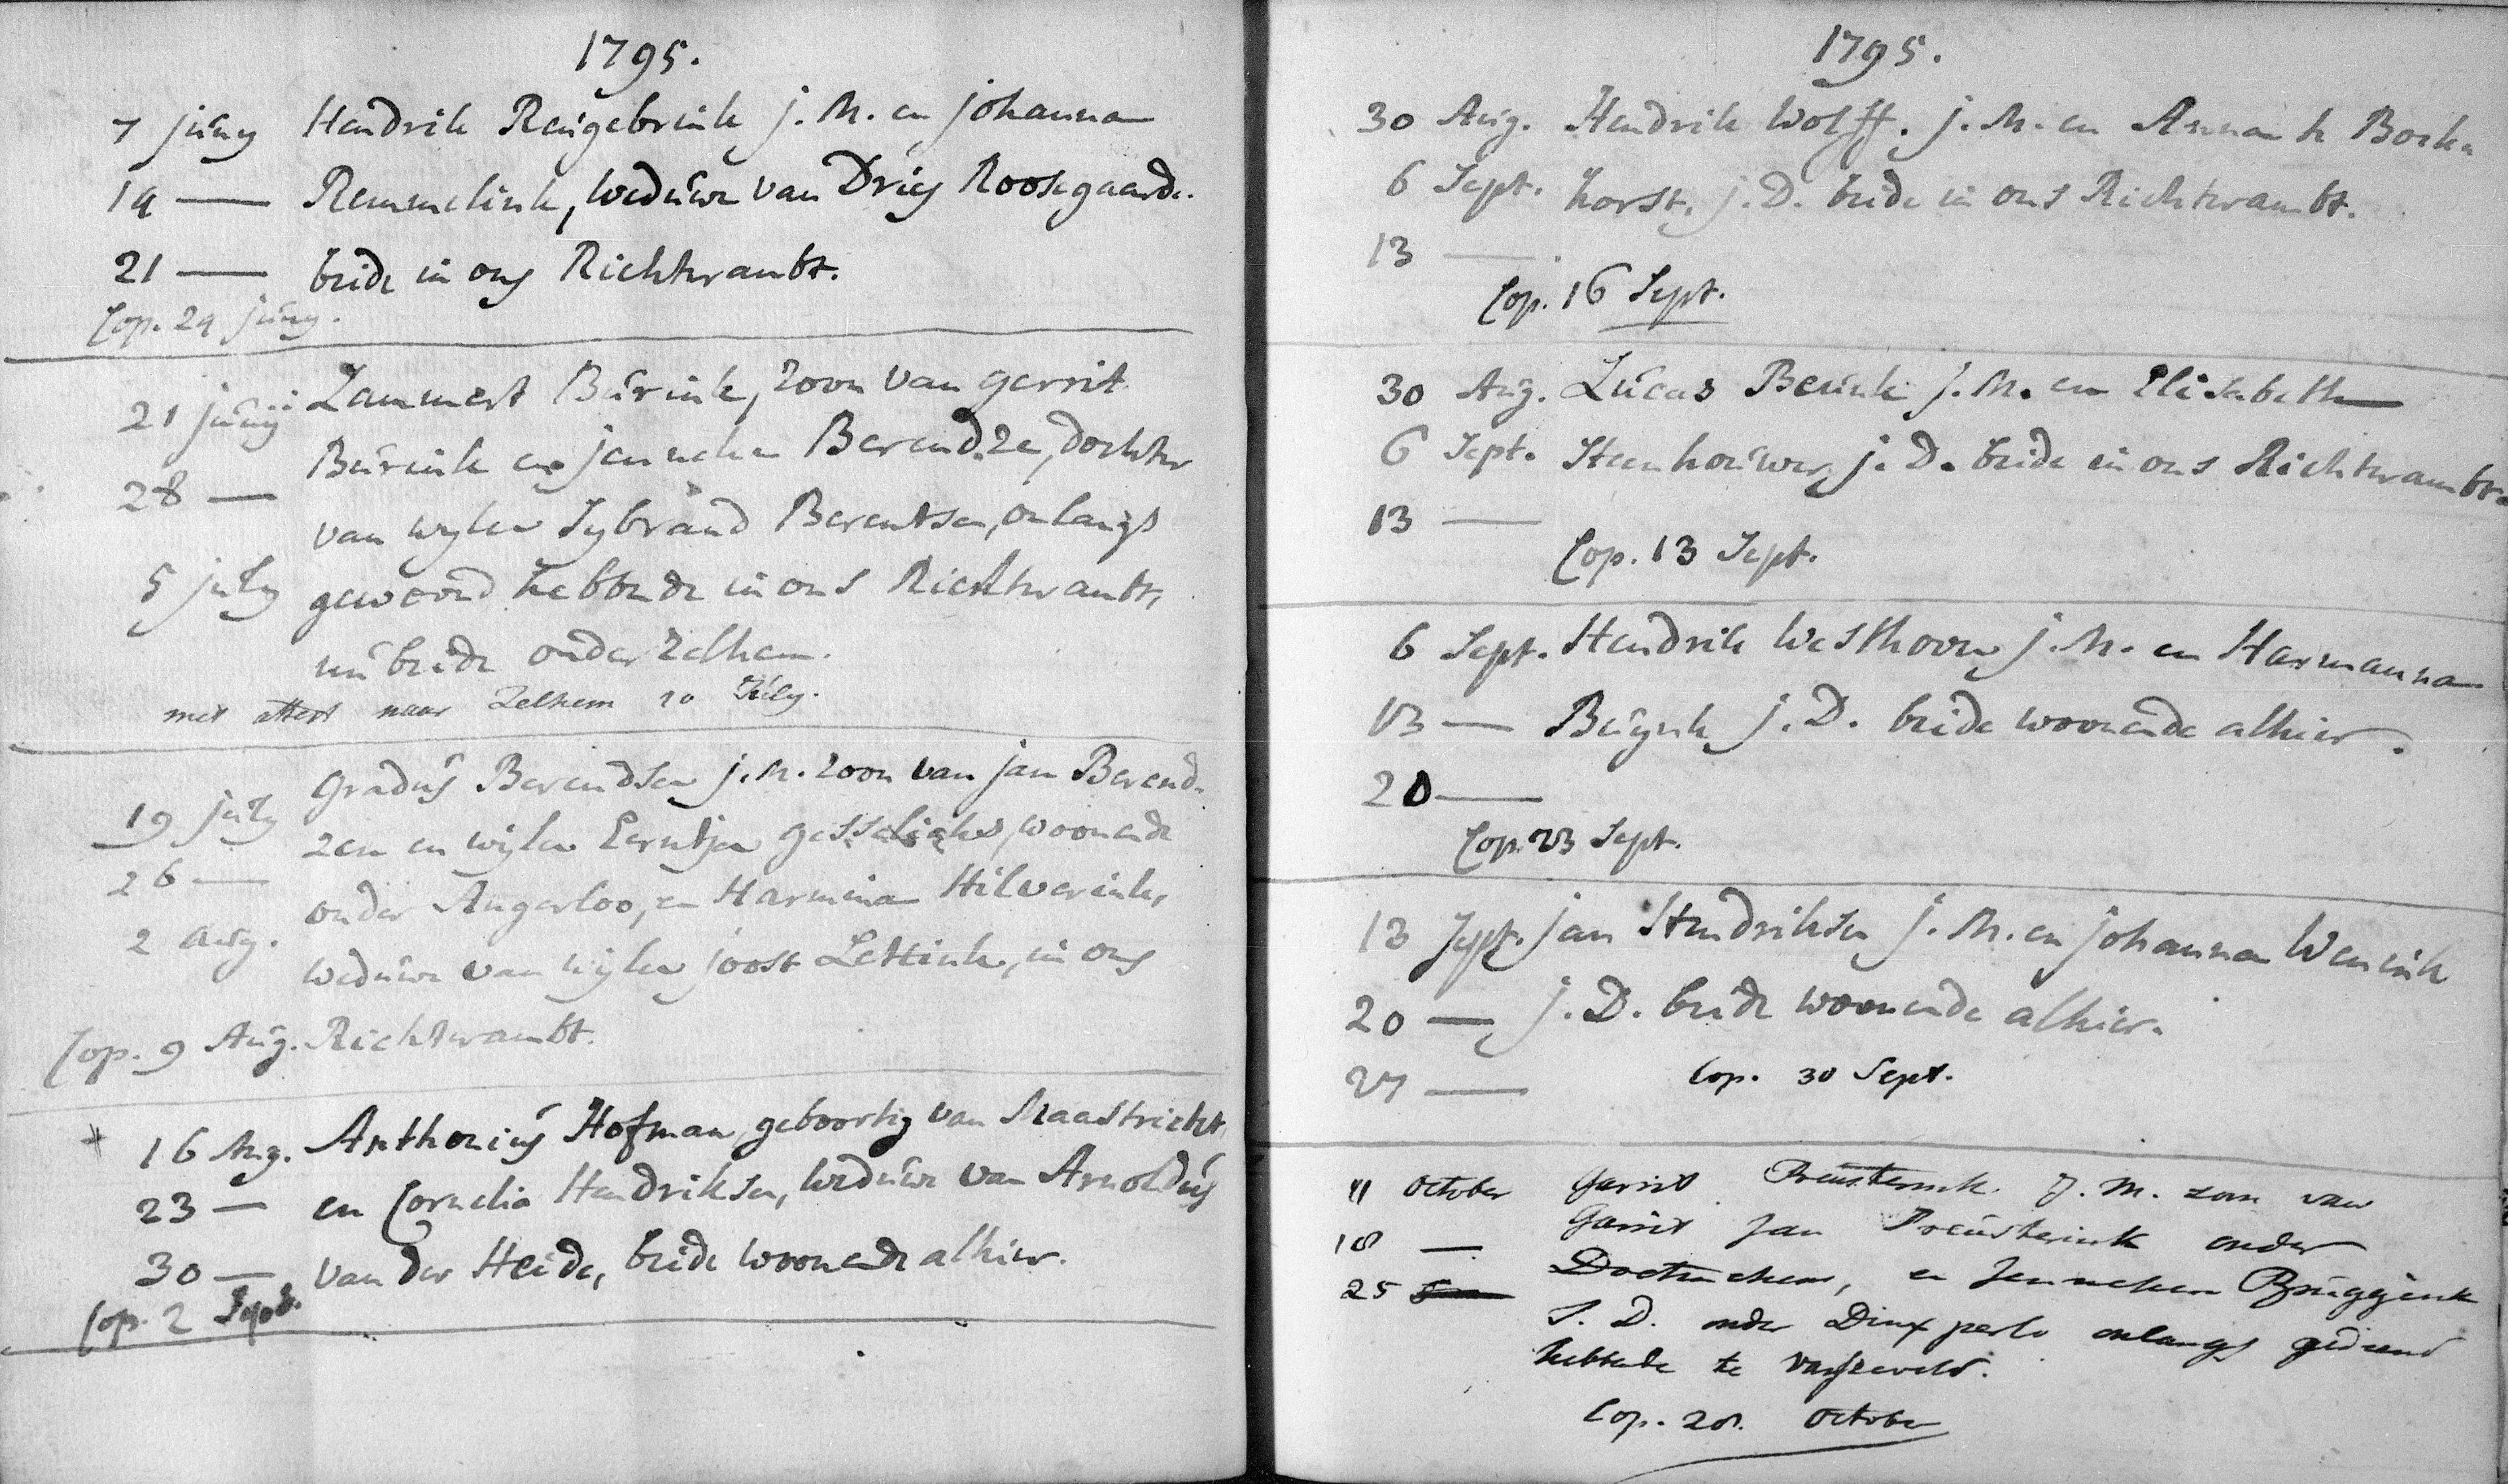 1795.
7 juny Hendrik Reugebrink j. M. en johanna
14 — Remmelink, weduwe van Dries Roosegaarde.
21 — beide in ons Richterambt.
Cop. 24 juny.
21 junij Lammert Bûrink, zoon van gerrit
Bûrink en jenneken Berendze, dochter
28 — van wylen Sybrand Berentsen, onlangs
5 july gewoond hebbende in ons Richterambt,
nu beide onder Zelhem.
met attest naar Zelhem 10 July.
19 july Gradus Berendsen j. M. zoon van jan Berend-
zen en wijlen Eerntjen gesselinks, woonende
26 — onder Angerloo, en Harmina Hilverink,
2 Aug. weduwe van wijlen joost Lettink, in ons
Cop. 9 Aug. Richterambt.
+ 16 Aug. Anthonius Hofman, geboortig van Maastricht,
23 — en Cornelia Hendriksen, weduwe van Arnoldus
30 — van der Heide, beide woonende alhier.
Cop. 2 Sept.
1795.
30 Aug. Hendrik Wolff. j. M. en Anna te Bock-
6 Sept. horst, j. D. beide in ons Richterambt.
13 —
Cop. 16 Sept.
30 Aug. Lucas Beunk j. M. en Elisabeth
6 Sept. Steenhouwer, j. D. beide in ons Richterambt.
13 —
Cop. 13 Sept.
6 Sept. Hendrik Westhoven j. M. en Harmanna
13 — Buyink j. D. beide woonende alhier.
20 —
Cop. 23 Sept.
13 Sept. jan Hendriksen j. M. en johanna Wenink
20 — j. D. beide woonende alhier.
27 —
Cop. 30 Sept.
11 October Garrit Preusterink. J. M. zoon van
18 — Garrit Jan Preusterink onder
25 Doetinchem, en Jenneken Bruggink
J. D. onder Dinxperlo onlangs gediend
hebbende te Varsseveld.
Cop. 28. October